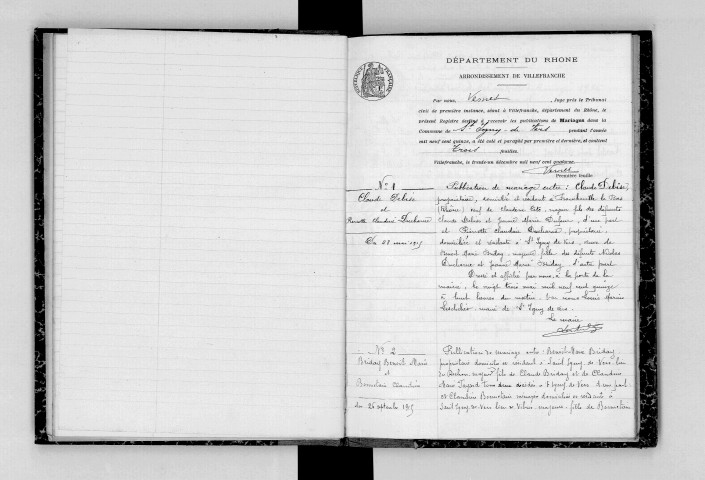 DÉPARTEMENT DU RHONE
ARRONDISSEMENT DE VILLEFRANCHE
Par nous, Vernet, Juge près le Tribunal
civil de première instance, séant à Villefranche, département du Rhône, le
présent Registre destiné à recevoir les publications de Mariages dans la
Commune de St Igny-de-Vers pendant l'année
mil neuf cent quinze, a été coté et paraphé par première et dernière, et contient
trois feuilles.
Villefranche, le trente-un décembre mil neuf cent quatorze.
Première feuille
No 1
Claude Debise
et
Pierrette Claudine Ducharne
Du 23 mai 1915
Publication de mariage entre : Claude Debise,
propriétaire, domicilié et résidant à
(Rhône), veuf de Claudine, majeur fils des défunts
Claude Debise et Jeanne Marie, d'une part
et Pierrette Claudine Ducharne, propriétaire,
domiciliée et résidante à St Igny de Vers, veuve de
Benoit Marie Briday, majeure fille des défunts Nicolas
Ducharne et Jeanne Marie Briday, d'autre part
Dressé et affiché par nous, à la porte de la
mairie, le vingt trois mai mil neuf cent quinze
à huit heures du matin. Par nous Louis Marius
maire de St Igny de Vers.
Le maire
No 2
Briday Benoit Marie
et
Claudine
du 26 septembre 1915
Publication de mariage entre : Benoit Marie Briday
propriétaire domicilié et résidant à Saint Igny de Vers lieu
du, majeur fils de Claude Briday et de Claudine
Marie tous deux décédés à St Igny de Vers d'une part
et Claudine ménagère domiciliée et résidante à
Saint Igny de Vers lieu de, majeure fille de